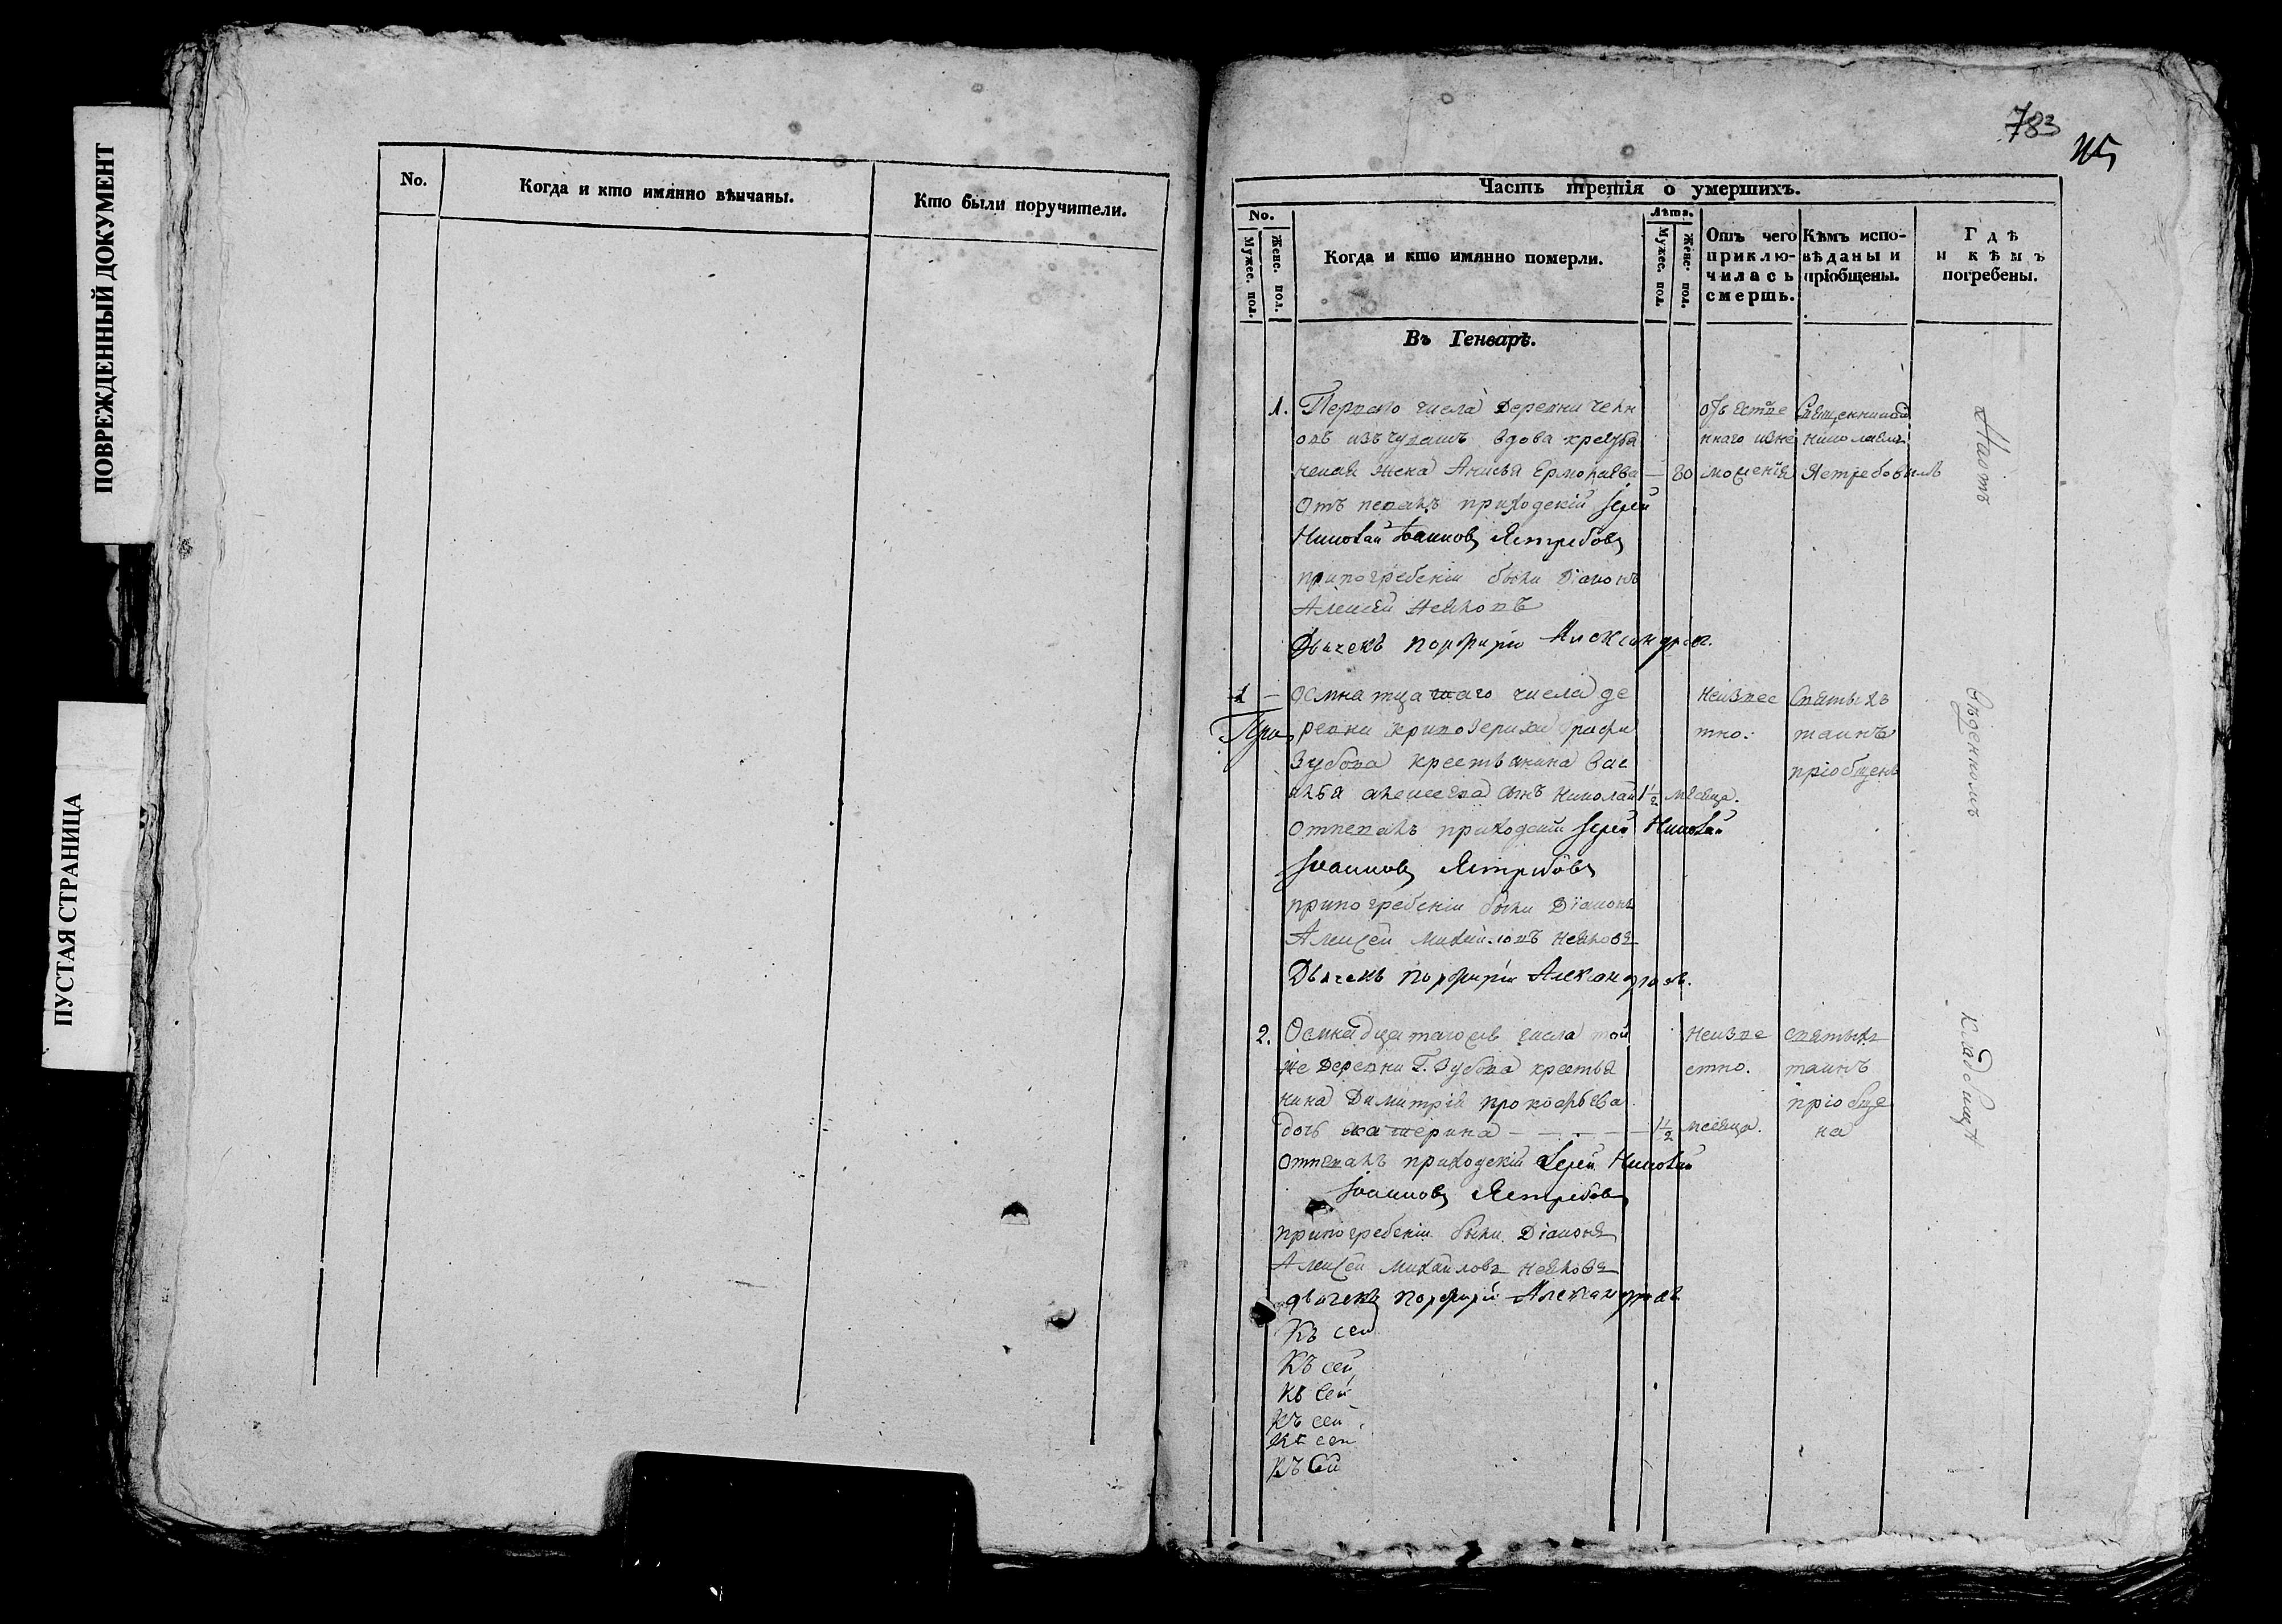 ПОВРЕЖДЕННЫЙ ДОКУМЕНТ
ПУСТАЯ СТРАНИЦА
No.
Когда и кто имянно вѣнчаны.
Кто были поручители.
783
Часть третія о умершихъ.
No.
Мужес. пол.
Женс. пол.
Когда и кто имянно померли.
Лѣта.
Мужес. пол.
Женс. пол.
Отъ чего
приклю-
чилась
смерть.
Кѣмъ испо-
вѣданы и
пріобщены.
Гдѣ
и кѣмъ
погребены.
Въ Генварѣ.
1. Перваго числа деревни
вдова
жена Анисья Ермолаева — 80
Отъ певалъ приходскій Іерей
Николай Іоанновъ Ястребовъ
при погребеніи были Діаконъ
Алексей
Дьячекъ Порфирій Александровъ.
отъ есте
ннаго изне
можения
Священникомъ
николаемъ
Ястребовымъ
1 — осмнатцатаго числа де
ревни Графа
Зубова крестьянина Васи
лья алексеева сынъ Николай 1½ месяца.
отпевалъ приходский Іерей Николай
Іоанновъ Ястребовъ
при погребеніи были Діаконъ
Алексей Михайловъ
Дьячекъ Порфирій Александровъ.
Неизвес
тно.
Святыхъ
таинъ
пріобщенъ
2. Осмнадцатагожъ числа той
же деревни Г. Зубова крестья
нина Димитрія прокофьева
дочь екатерина — 1½ месяца.
отпевалъ приходскій Іерей Николай
Іоанновъ Ястребовъ
при погребеніи были Діаконъ
Алексей Михайловъ
дьячекъ Порфирій Александровъ
Неизве
стно.
святыхъ
таинъ
пріобще
на
На отъ
веденномъ
кладбищѣ
Къ сей
Къ сей
Къ сей
Къ сей
Къ сей
Къ сей